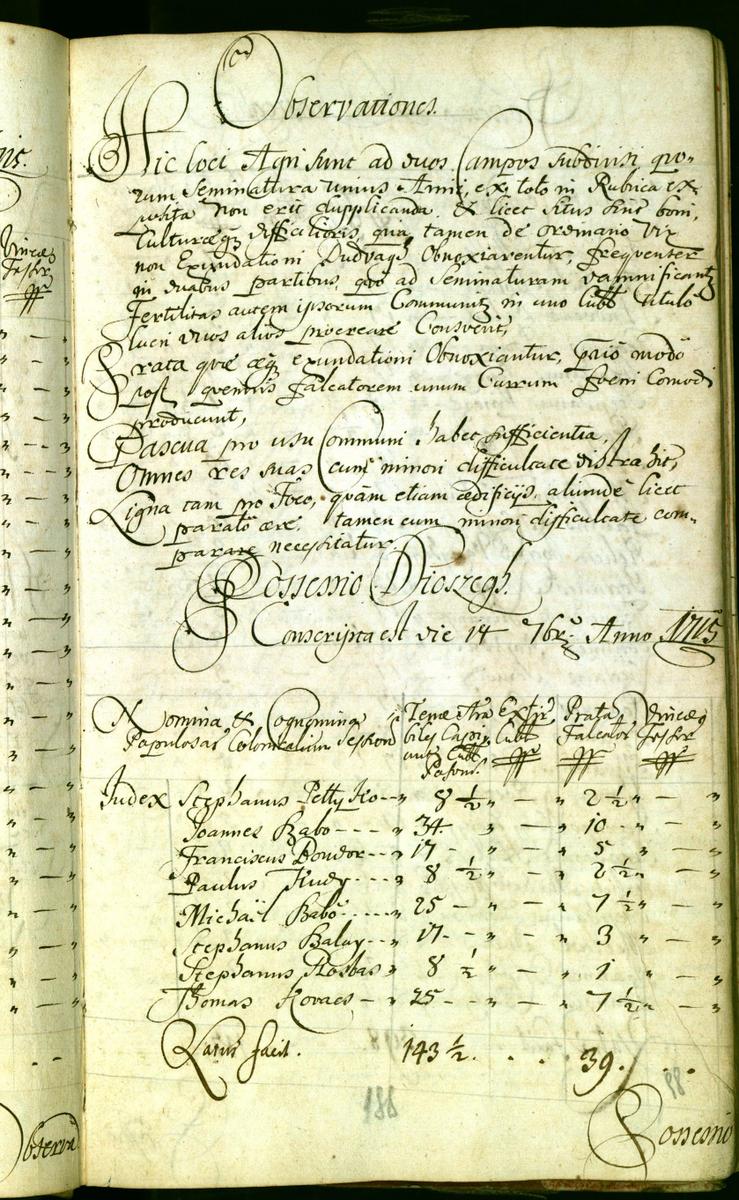 Observationes.
Hic loci Agri sunt ad duos Campos subdivisi quo-
rum Seminatura unius Anni, ex toto in Rubrica ex-
posita non erit dupplicanda, & licet situs sint boni,
Culturæq difficilioris, qua tamen de ordinario vix
non Exundationi Dudvagh Obnoxiarentur, frequenter
in duabus partibus, quo ad Seminaturam damnificant
Fertilitas autem ipsorum Communit in uno Cubb titulo
lucri duos alios procreare Consvevit,
Prata quæ æq exundationi Obnoxiantur, modo
post quemvis falcatorem unum Currum foeni Comodi
producunt,
Pascua pro usu Communi habet sufficientia,
Omnes res suas cum minori difficultate distrahit,
Ligna tam pro Foco, quàm etiam ædificijs, aliundè licet
parato ære, tamen cum minori difficultate com-
parare necessitatur.
Possessio Dioszegh.
Conscripta est die 14 7br. Anno 1715
Nomina & Cognomina Terræ Ara Extir Prata Vineæ
Populosar Colonicalium Session biles Capi Cubb Falcator Fossor
Cubb
Poson.
Judex Stephanus Petty Ko-- 8 ½ " — " 2 ½ " — "
Joannes Babo---- " 34. " — " 10 - " — "
Franciscus Dondor-- " 17 - " — " 5 " — "
Paulus Kudy---- " 8 ½ " — " 2 ½ " — "
Michaël Babo..... " 25 - - " — " 7 ½ " — "
Stephanus Balay-- " 17 - - " — " 3 " — "
Stephanus Rosbas " 8 ½ " — " 1 " — "
Thomas Kovacs — " 25 - - " — " 7 ½ " — "
Latus facit. 143 ½. . . 39. . .
186
88
Possessio
Observa